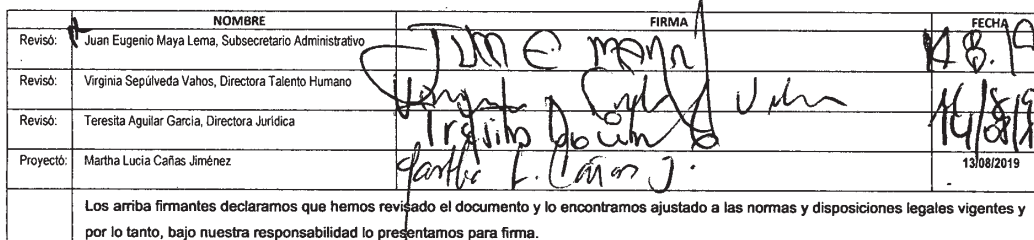 NOMBRE FIRMA FECHA
Revisó: Juan Eugenio Maya Lema, Subsecretario Administrativo Juan E maya 14.8.19
Revisó: Virginia Sepúlveda Vahos, Directora Talento Humano
Revisó: Teresita Aguilar Garcia, Directora Jurídica 14/08/19
Proyectó: Martha Lucia Cañas Jiménez Martha L. Cañas J. 13/08/2019
Los arriba firmantes declaramos que hemos revisado el documento y lo encontramos ajustado a las normas y disposiciones legales vigentes y
por lo tanto, bajo nuestra responsabilidad lo presentamos para firma.